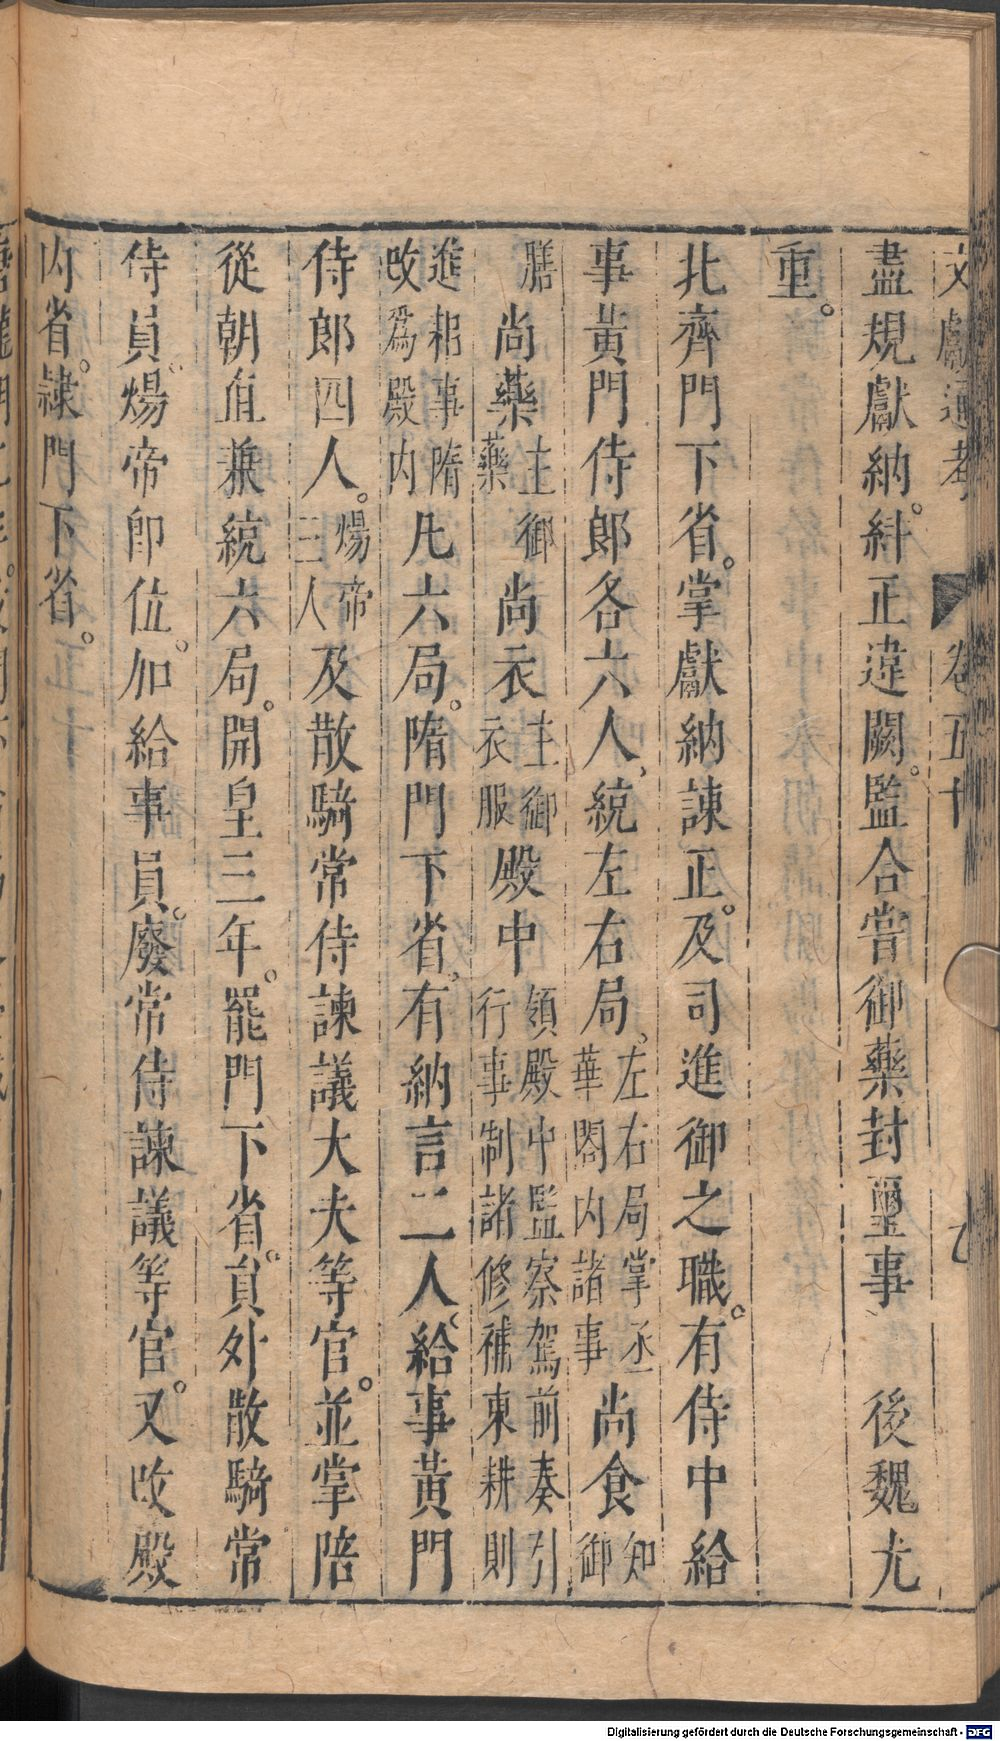 文獻通考 卷五十
盡規獻納。糾正違闕。監合嘗御藥封璽事 後魏尤
重。
北齊門下省。掌獻納諫正。及司進御之職。有侍中給
事黃門侍郎各六人、統左右局。左右局掌丞華閣內諸事尚食知御
膳尚藥主御藥尚衣主御衣服殿中領殿中監察駕前奏引行事制諸修補東耕則
進耜事隋改爲殿內凡六局。隋門下省。有納言二人、給事黃門
侍郎四人。煬帝三人及散騎常侍諫議大夫等官。並掌陪
從朝直兼統六局。開皇三年。罷門下省。員外散騎常
侍員。煬帝卽位。加給事員。廢常侍諫議等官。又改殿
內省。隸門下省。
Digitalisierung gefördert durch die Deutsche Forschungsgemeinschaft - DFG